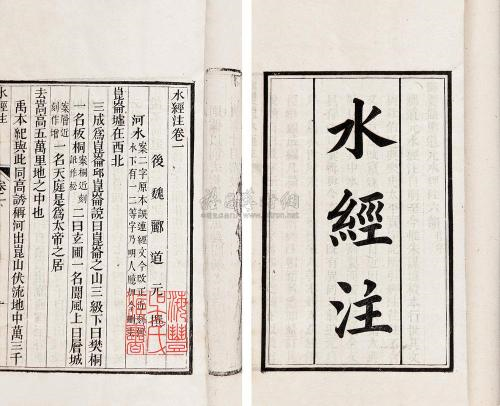 水經注
水經注卷一
後魏酈道元撰
河水
案二字原本誤連經文今改正近刻河
水下有一二等字乃明人臆加今刪去
崑崙墟在西北
三成爲崑崙邱崑崙說曰崑崙之山三級下曰樊桐
一名板桐案桐近刻訛作松二曰玄圃一名閬風上曰層城
案層近刻作增一名天庭是爲太帝之居
去嵩高五萬里地之中也
禹本紀與此同高誘稱河出崑山伏流地中萬三千
水經注
海豐